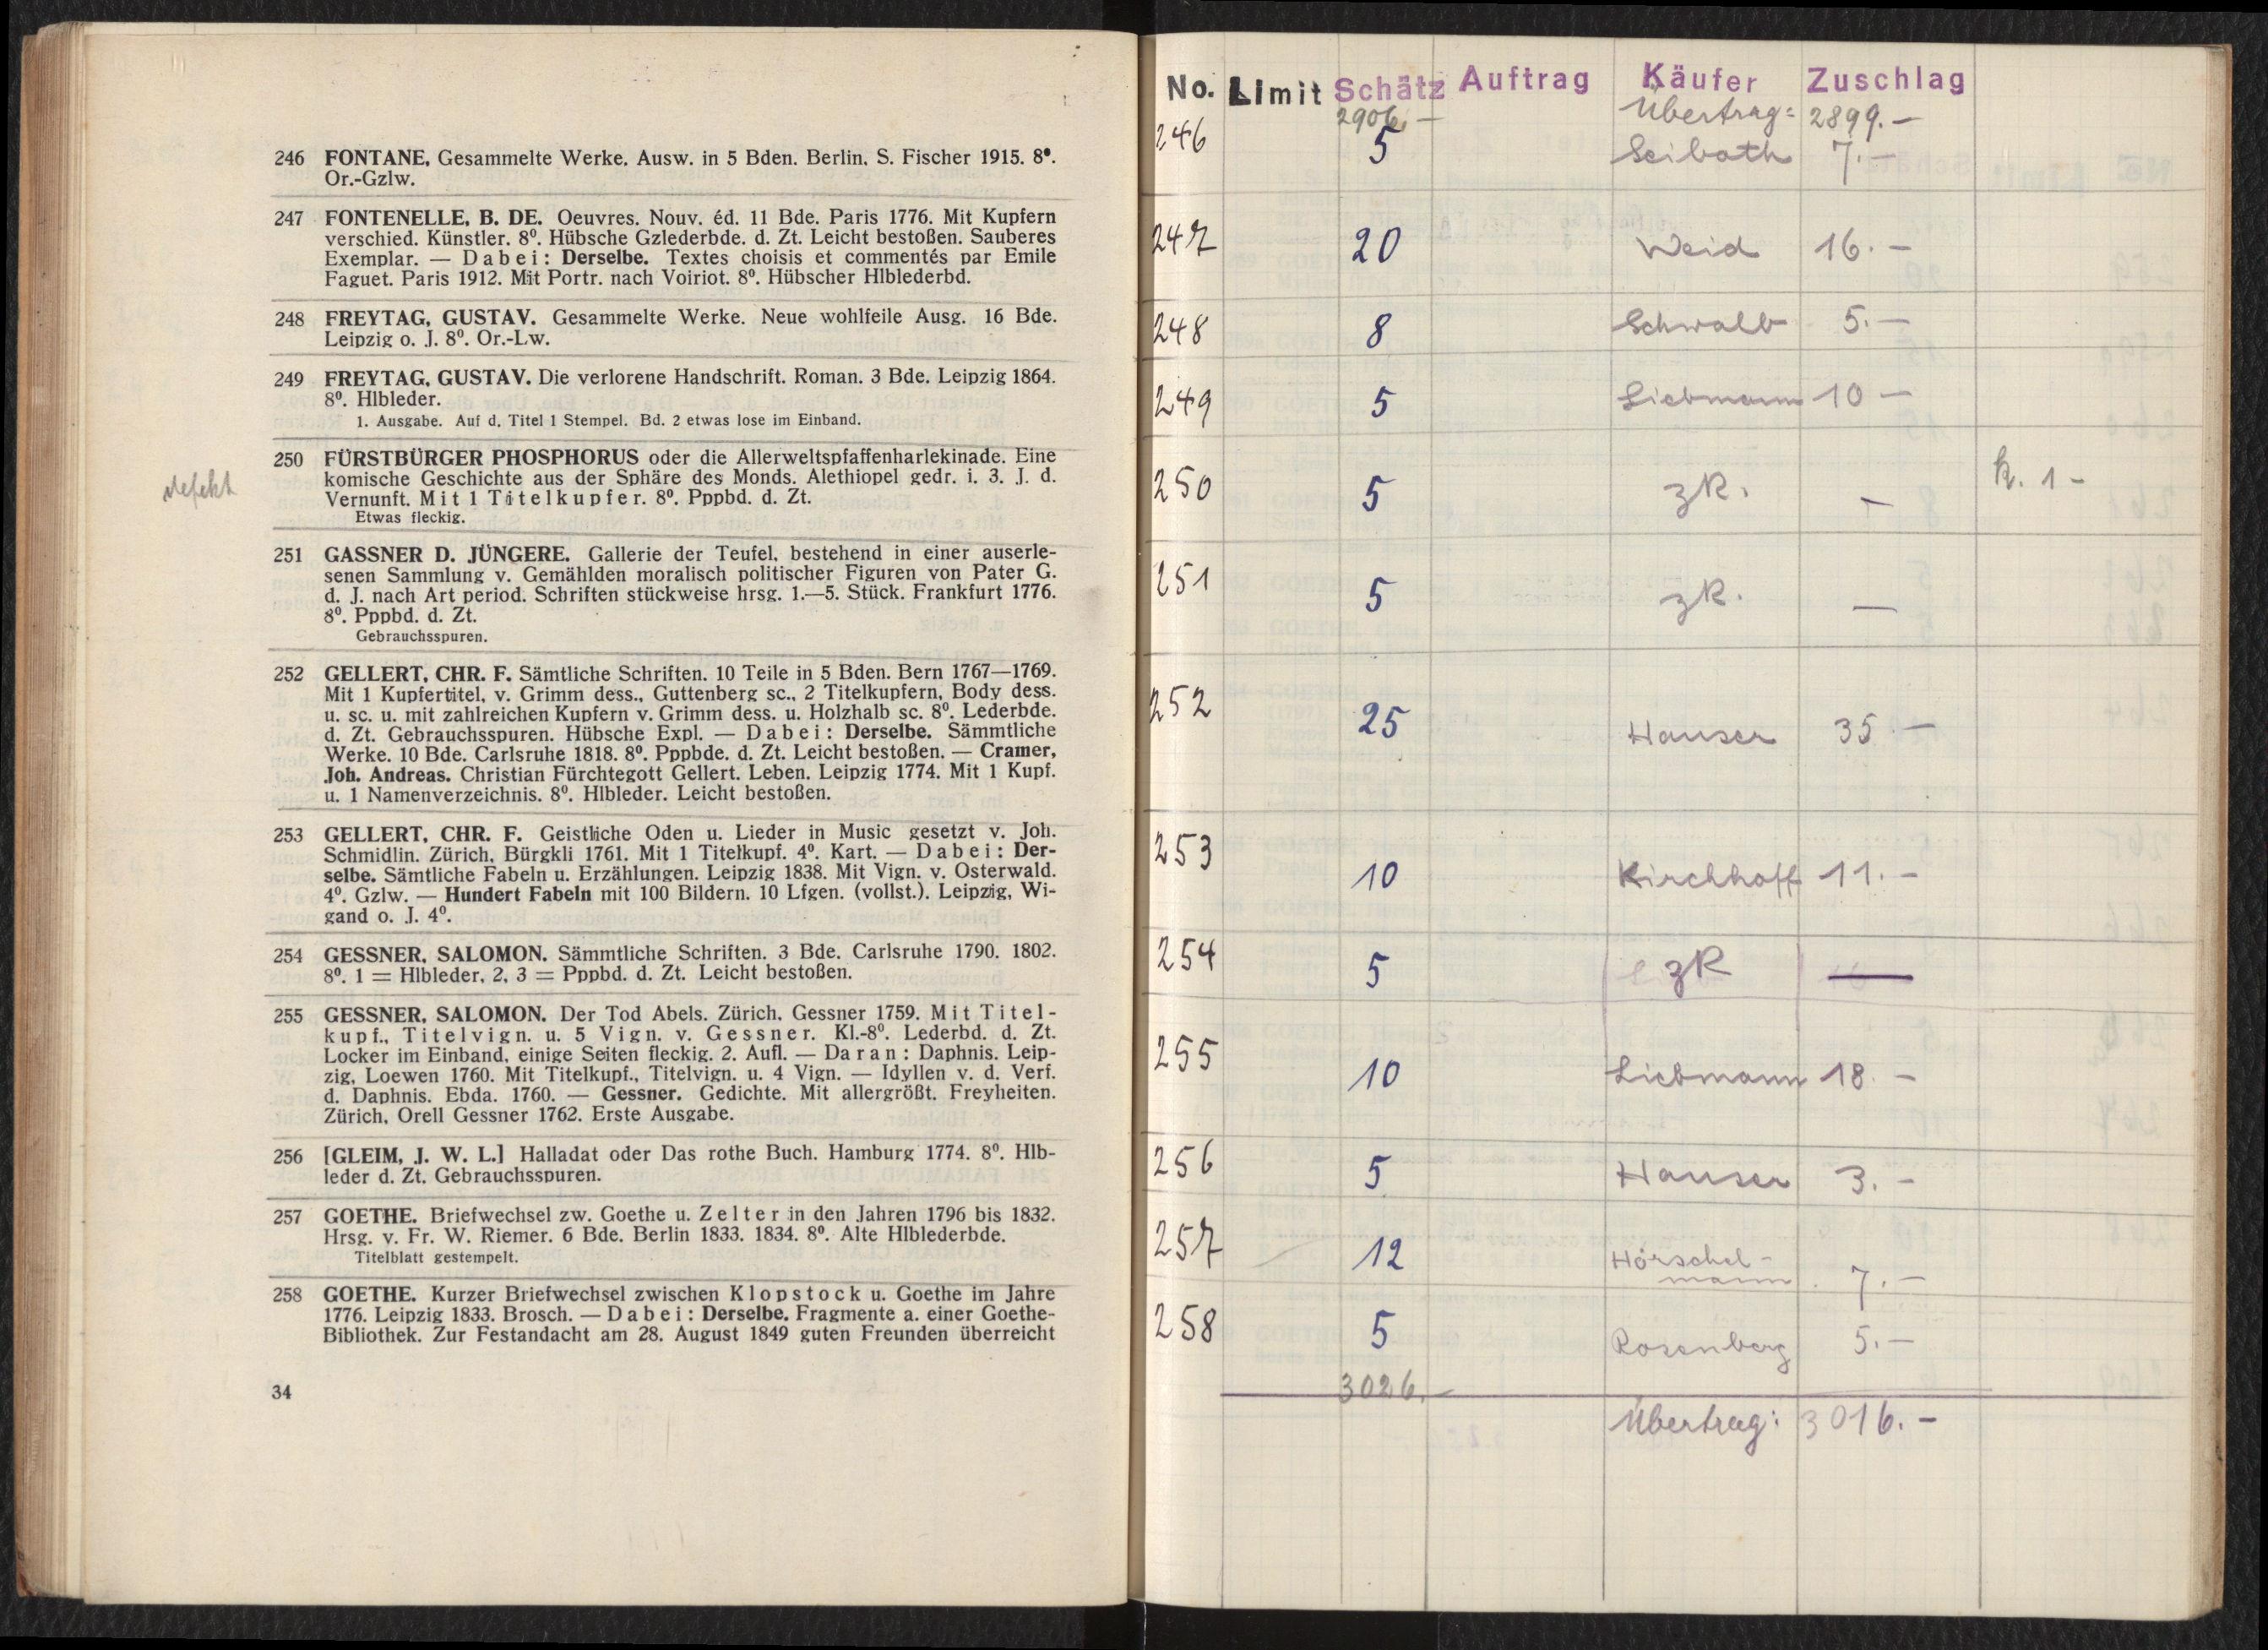 246 FONTANE, Gesammelte Werke. Ausw. in 5 Bden. Berlin, S. Fischer 1915. 8⁰.
Or.-Gzlw.
247 FONTENELLE, B. DE. Oeuvres. Nouv. éd. 11 Bde. Paris 1776. Mit Kupfern
verschied. Künstler. 8⁰. Hübsche Gzlederbde. d. Zt. Leicht bestoßen. Sauberes
Exemplar. — Dabei: Derselbe. Textes choisis et commentés par Emile
Faguet. Paris 1912. Mit Portr. nach Voiriot. 8⁰. Hübscher Hlblederbd.
248 FREYTAG, GUSTAV. Gesammelte Werke. Neue wohlfeile Ausg. 16 Bde.
Leipzig o. J. 8⁰. Or.-Lw.
249 FREYTAG, GUSTAV. Die verlorene Handschrift. Roman. 3 Bde. Leipzig 1864.
8⁰. Hlbleder.
1. Ausgabe. Auf d. Titel 1 Stempel. Bd. 2 etwas lose im Einband.
defekt
250 FÜRSTBÜRGER PHOSPHORUS oder die Allerweltspfaffenharlekinade. Eine
komische Geschichte aus der Sphäre des Monds. Alethiopel gedr. i. 3. J. d.
Vernunft. Mit 1 Titelkupfer. 8⁰. Pppbd. d. Zt.
Etwas fleckig.
251 GASSNER D. JÜNGERE. Gallerie der Teufel, bestehend in einer auserle-
senen Sammlung v. Gemählden moralisch politischer Figuren von Pater G.
d. J. nach Art period. Schriften stückweise hrsg. 1.—5. Stück. Frankfurt 1776.
8⁰. Pppbd. d. Zt.
Gebrauchsspuren.
252 GELLERT, CHR. F. Sämtliche Schriften. 10 Teile in 5 Bden. Bern 1767—1769.
Mit 1 Kupfertitel, v. Grimm dess., Guttenberg sc., 2 Titelkupfern, Body dess.
u. sc. u. mit zahlreichen Kupfern v. Grimm dess. u. Holzhalb sc. 8⁰. Lederbde.
d. Zt. Gebrauchsspuren. Hübsche Expl. — Dabei: Derselbe. Sämmtliche
Werke. 10 Bde. Carlsruhe 1818. 8⁰. Pppbde. d. Zt. Leicht bestoßen. — Cramer,
Joh. Andreas. Christian Fürchtegott Gellert. Leben. Leipzig 1774. Mit 1 Kupf.
u. 1 Namenverzeichnis. 8⁰. Hlbleder. Leicht bestoßen.
253 GELLERT, CHR. F. Geistliche Oden u. Lieder in Music gesetzt v. Joh.
Schmidlin. Zürich, Bürgkli 1761. Mit 1 Titelkupf. 4⁰. Kart. — Dabei: Der-
selbe. Sämtliche Fabeln u. Erzählungen. Leipzig 1838. Mit Vign. v. Osterwald.
4⁰. Gzlw. — Hundert Fabeln mit 100 Bildern. 10 Lfgen. (vollst.). Leipzig, Wi-
gand o. J. 4⁰.
254 GESSNER, SALOMON. Sämmtliche Schriften. 3 Bde. Carlsruhe 1790. 1802.
8⁰. 1 = Hlbleder, 2, 3 = Pppbd. d. Zt. Leicht bestoßen.
255 GESSNER, SALOMON. Der Tod Abels. Zürich, Gessner 1759. Mit Titel-
kupf., Titelvign. u. 5 Vign. v. Gessner. Kl.-8⁰. Lederbd. d. Zt.
Locker im Einband, einige Seiten fleckig. 2. Aufl. — Daran: Daphnis. Leip-
zig, Loewen 1760. Mit Titelkupf., Titelvign. u. 4 Vign. — Idyllen v. d. Verf.
d. Daphnis. Ebda. 1760. — Gessner. Gedichte. Mit allergrößt. Freyheiten.
Zürich, Orell Gessner 1762. Erste Ausgabe.
256 [GLEIM, J. W. L.] Halladat oder Das rothe Buch. Hamburg 1774. 8⁰. Hlb-
leder d. Zt. Gebrauchsspuren.
257 GOETHE. Briefwechsel zw. Goethe u. Zelter in den Jahren 1796 bis 1832.
Hrsg. v. Fr. W. Riemer. 6 Bde. Berlin 1833. 1834. 8⁰. Alte Hlblederbde.
Titelblatt gestempelt.
258 GOETHE. Kurzer Briefwechsel zwischen Klopstock u. Goethe im Jahre
1776. Leipzig 1833. Brosch. — Dabei: Derselbe. Fragmente a. einer Goethe-
Bibliothek. Zur Festandacht am 28. August 1849 guten Freunden überreicht
34
No. Limit Schätz Auftrag Käufer Zuschlag
2906.— Übertrag: 2899.—
246 5 Seibath 7.—
247 20 Weid 16.—
248 8 Schwalb 5.—
249 5 Liebmann 10 —
250 5 zR. — R. 1 -
251 5 zR. —
252 25 Hauser 35 —
253 10 Kirchhoff 11.—
254 5 zR —
255 10 Liebmann 18 —
256 5 Hauser 3.—
257 12 Hörschel-
mann 7.—
258 5 Rosenberg 5.—
3026.—
Übertrag: 3016.—